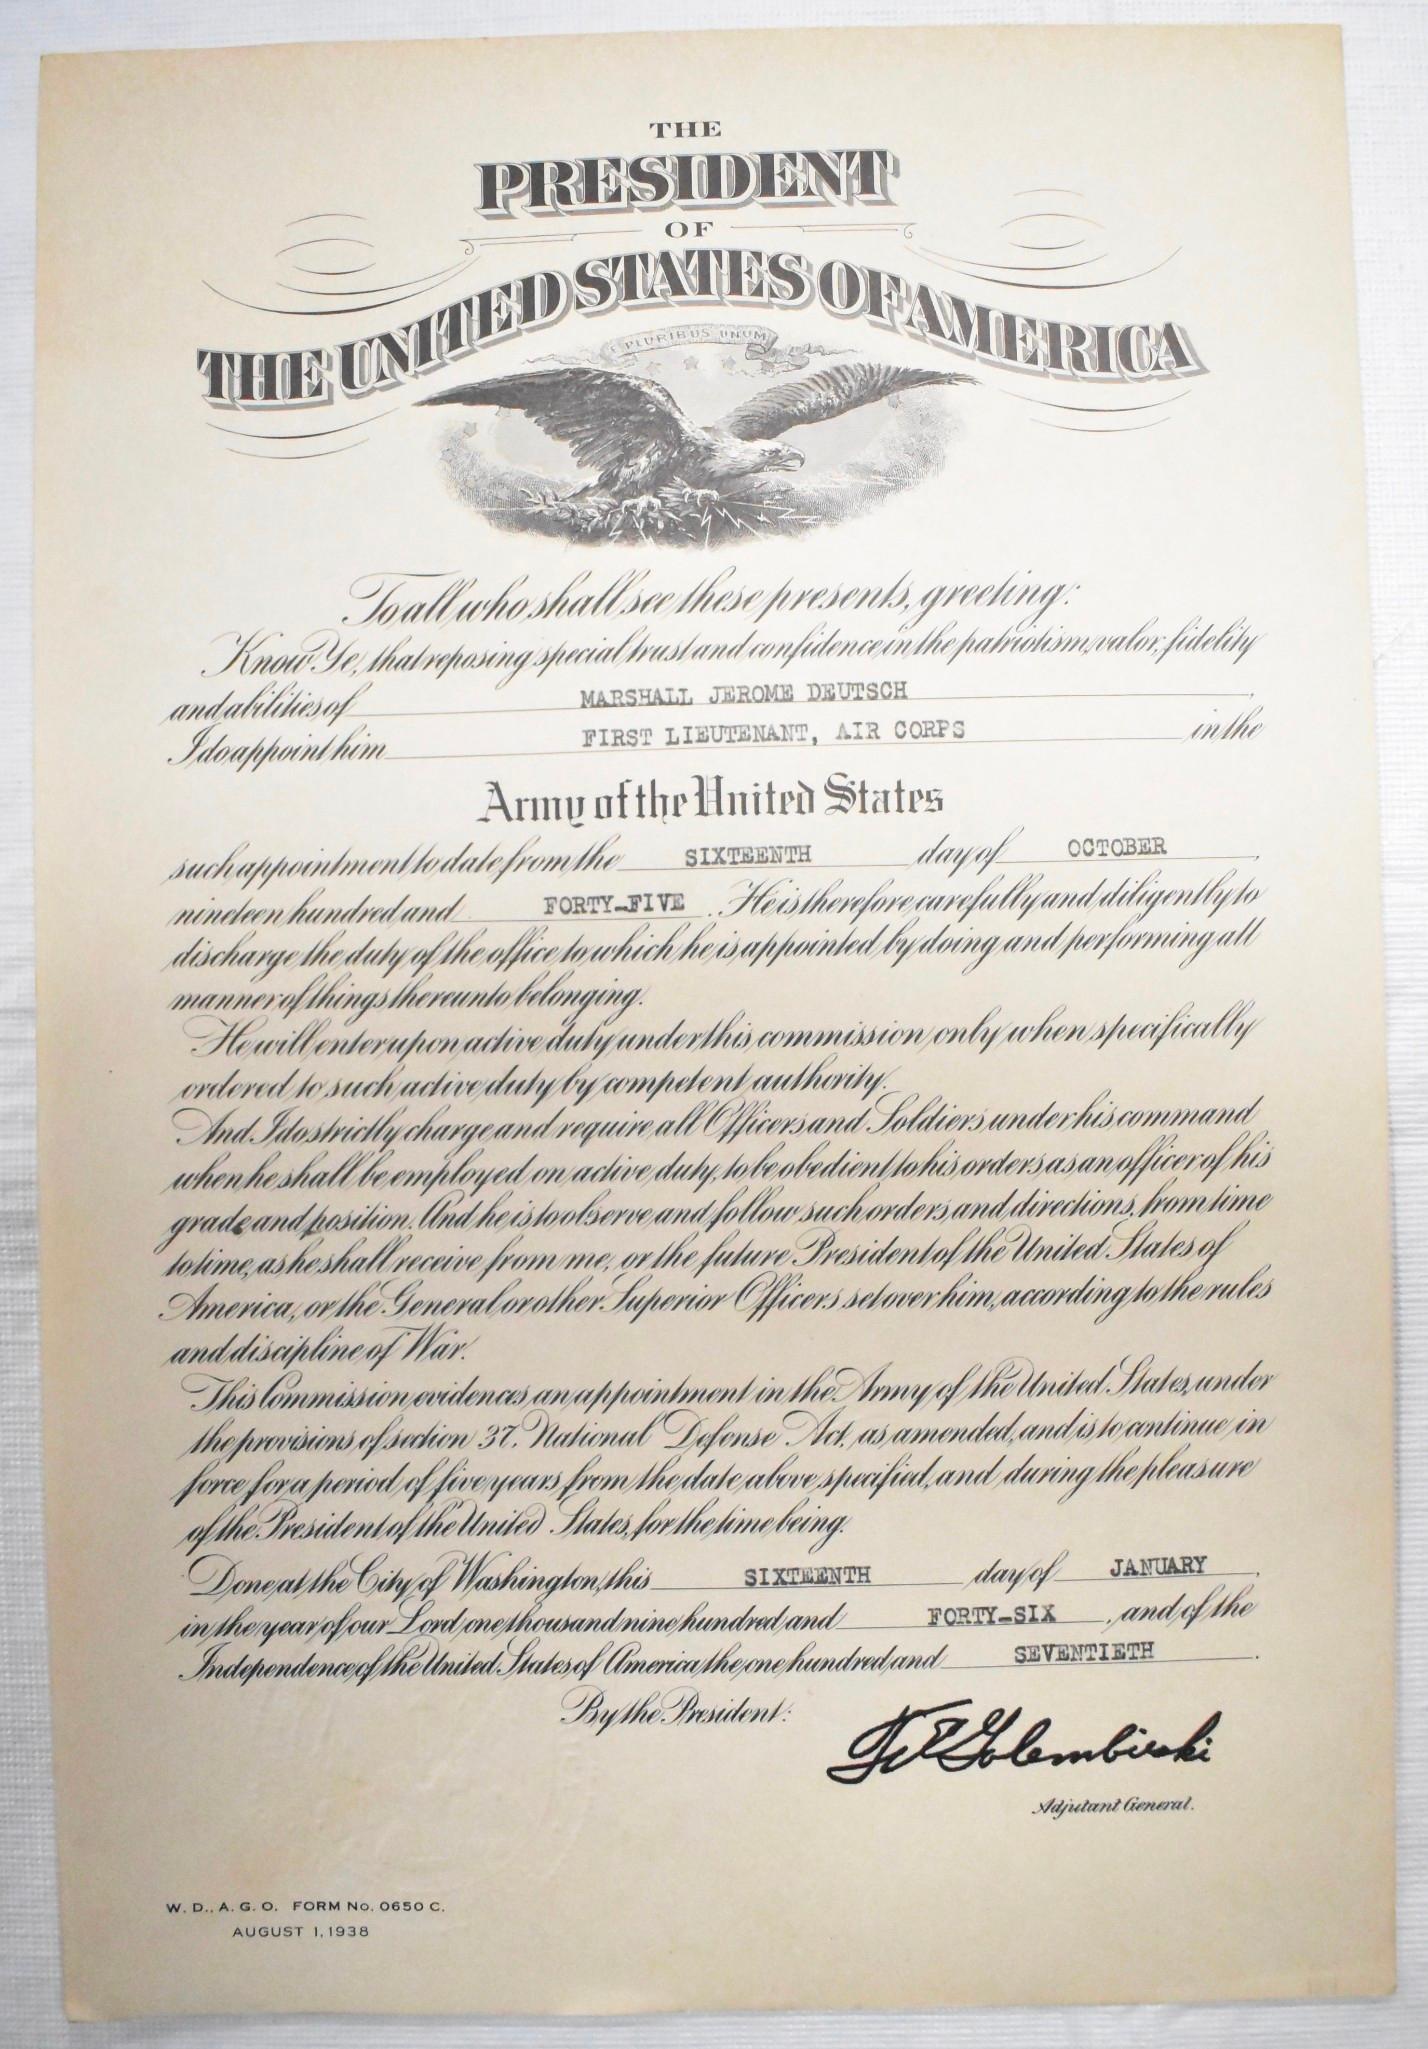 THE
PRESIDENT
OF
THE UNITED STATES OF AMERICA
E PLURIBUS UNUM
To all who shall see these presents, greeting:
Know Ye, that reposing special trust and confidence in the patriotism, valor, fidelity
and abilities of MARSHALL JEROME DEUTSCH,
I do appoint him FIRST LIEUTENANT, AIR CORPS in the
Army of the United States
such appointment to date from the SIXTEENTH day of OCTOBER,
nineteen hundred and FORTY-FIVE. He is therefore carefully and diligently to
discharge the duty of the office to which he is appointed by doing and performing all
manner of things thereunto belonging.
He will enter upon active duty under this commission only when specifically
ordered to such active duty by competent authority.
And I do strictly charge and require all Officers and Soldiers under his command
when he shall be employed on active duty, to be obedient to his orders as an officer of his
grade and position. And he is to observe and follow such orders and directions, from time
to time, as he shall receive from me, or the future President of the United States of
America, or the General or other Superior Officers set over him, according to the rules
and discipline of War.
This Commission evidences an appointment in the Army of the United States, under
the provisions of section 37, National Defense Act, as amended, and is to continue in
force for a period of five years from the date above specified, and during the pleasure
of the President of the United States, for the time being.
Done at the City of Washington, this SIXTEENTH day of JANUARY,
in the year of our Lord one thousand nine hundred and FORTY-SIX, and of the
Independence of the United States of America the one hundred and SEVENTIETH.
By the President:
Golembieski
Adjutant General.
W. D., A. G. O. FORM No. 0650 C.
AUGUST 1, 1938